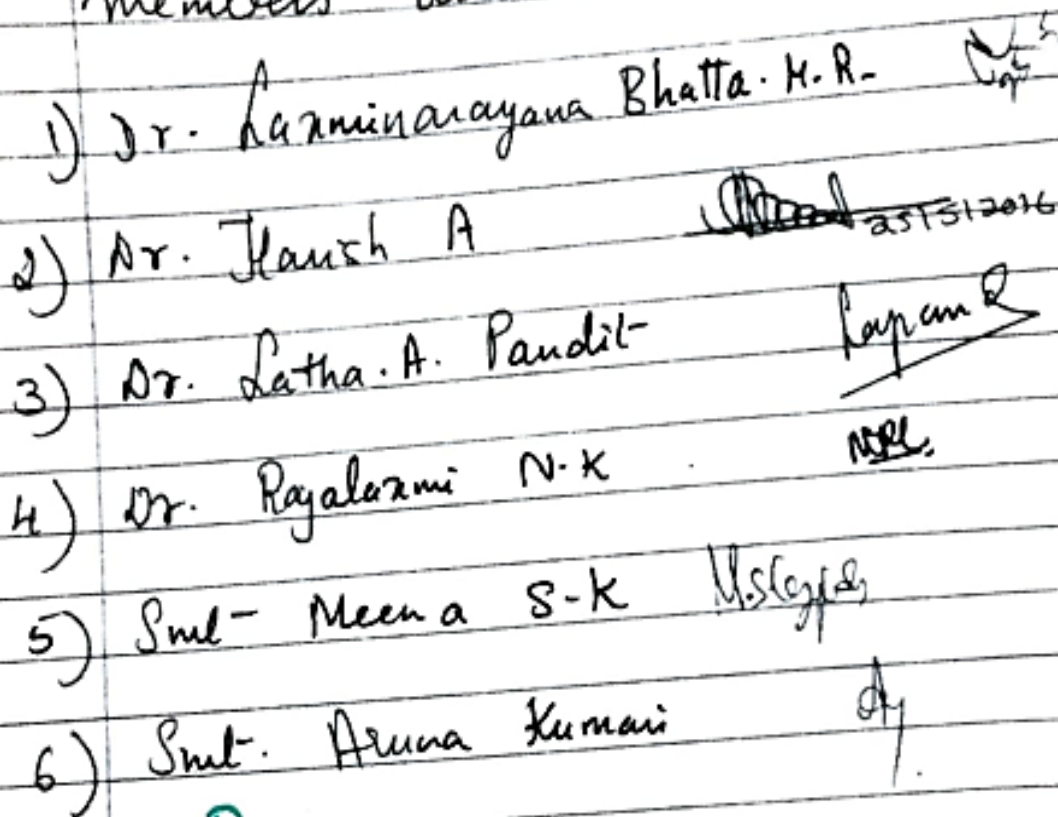 Members
1) Dr. Laxminarayana Bhatta. H. R.
2) Dr. Harish A 25/5/2016
3) Dr. Latha. A. Pandit
4) Dr. Rajalaxmi N.K
5) Smt Meena S-K
6) Smt. Aruna Kumari